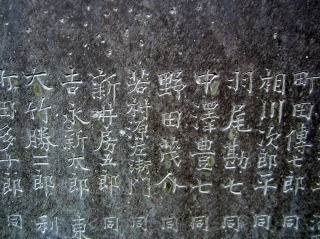 町田傳七郎
相川次郎平 同
羽尾勘七 同
中澤豊七 同
野田茂介 同
若村源左衛門 同
新井房五郎 同
吉永新太郎 東
大竹勝二郎 利
町田多十郎 同